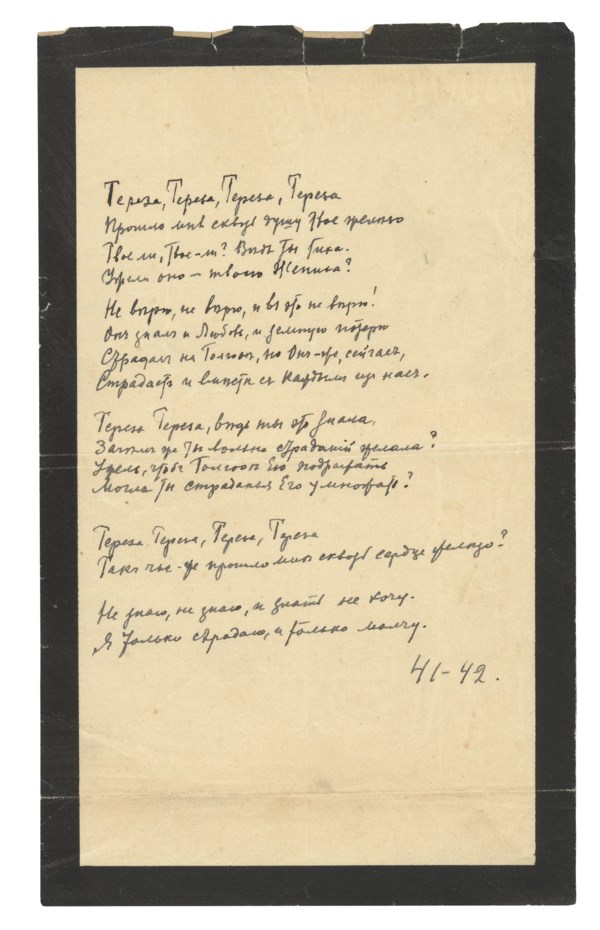 Тереза, Тереза, Тереза, Тереза
Прошло мнѣ сквозь душу твое желѣзо
Твое ли, твое-ли? Вѣдь ты тиха.
Ужели оно — твоего Жениха?
Не вѣрю, не вѣрю, и въ это не вѣрю!
Онъ зналъ и Любовь, и земную потерю
Страдалъ на Голгоѳѣ, но Онъ-же, сейчасъ,
Страдаетъ и вмѣстѣ съ каждымъ изъ насъ.
Тереза Тереза, вѣдь ты это знала,
Зачѣмъ же ты вольно страданій желала?
Ужель, чтобъ Голгоѳѣ Его подражать
Могла ты страданья Его умножать?
Тереза Тереза, Тереза, Тереза
Такъ чье-же прошло мнѣ сквозь сердце желѣзо?
Не знаю, не знаю, и знать не хочу.
Я только страдаю, и только молчу.
41-42.